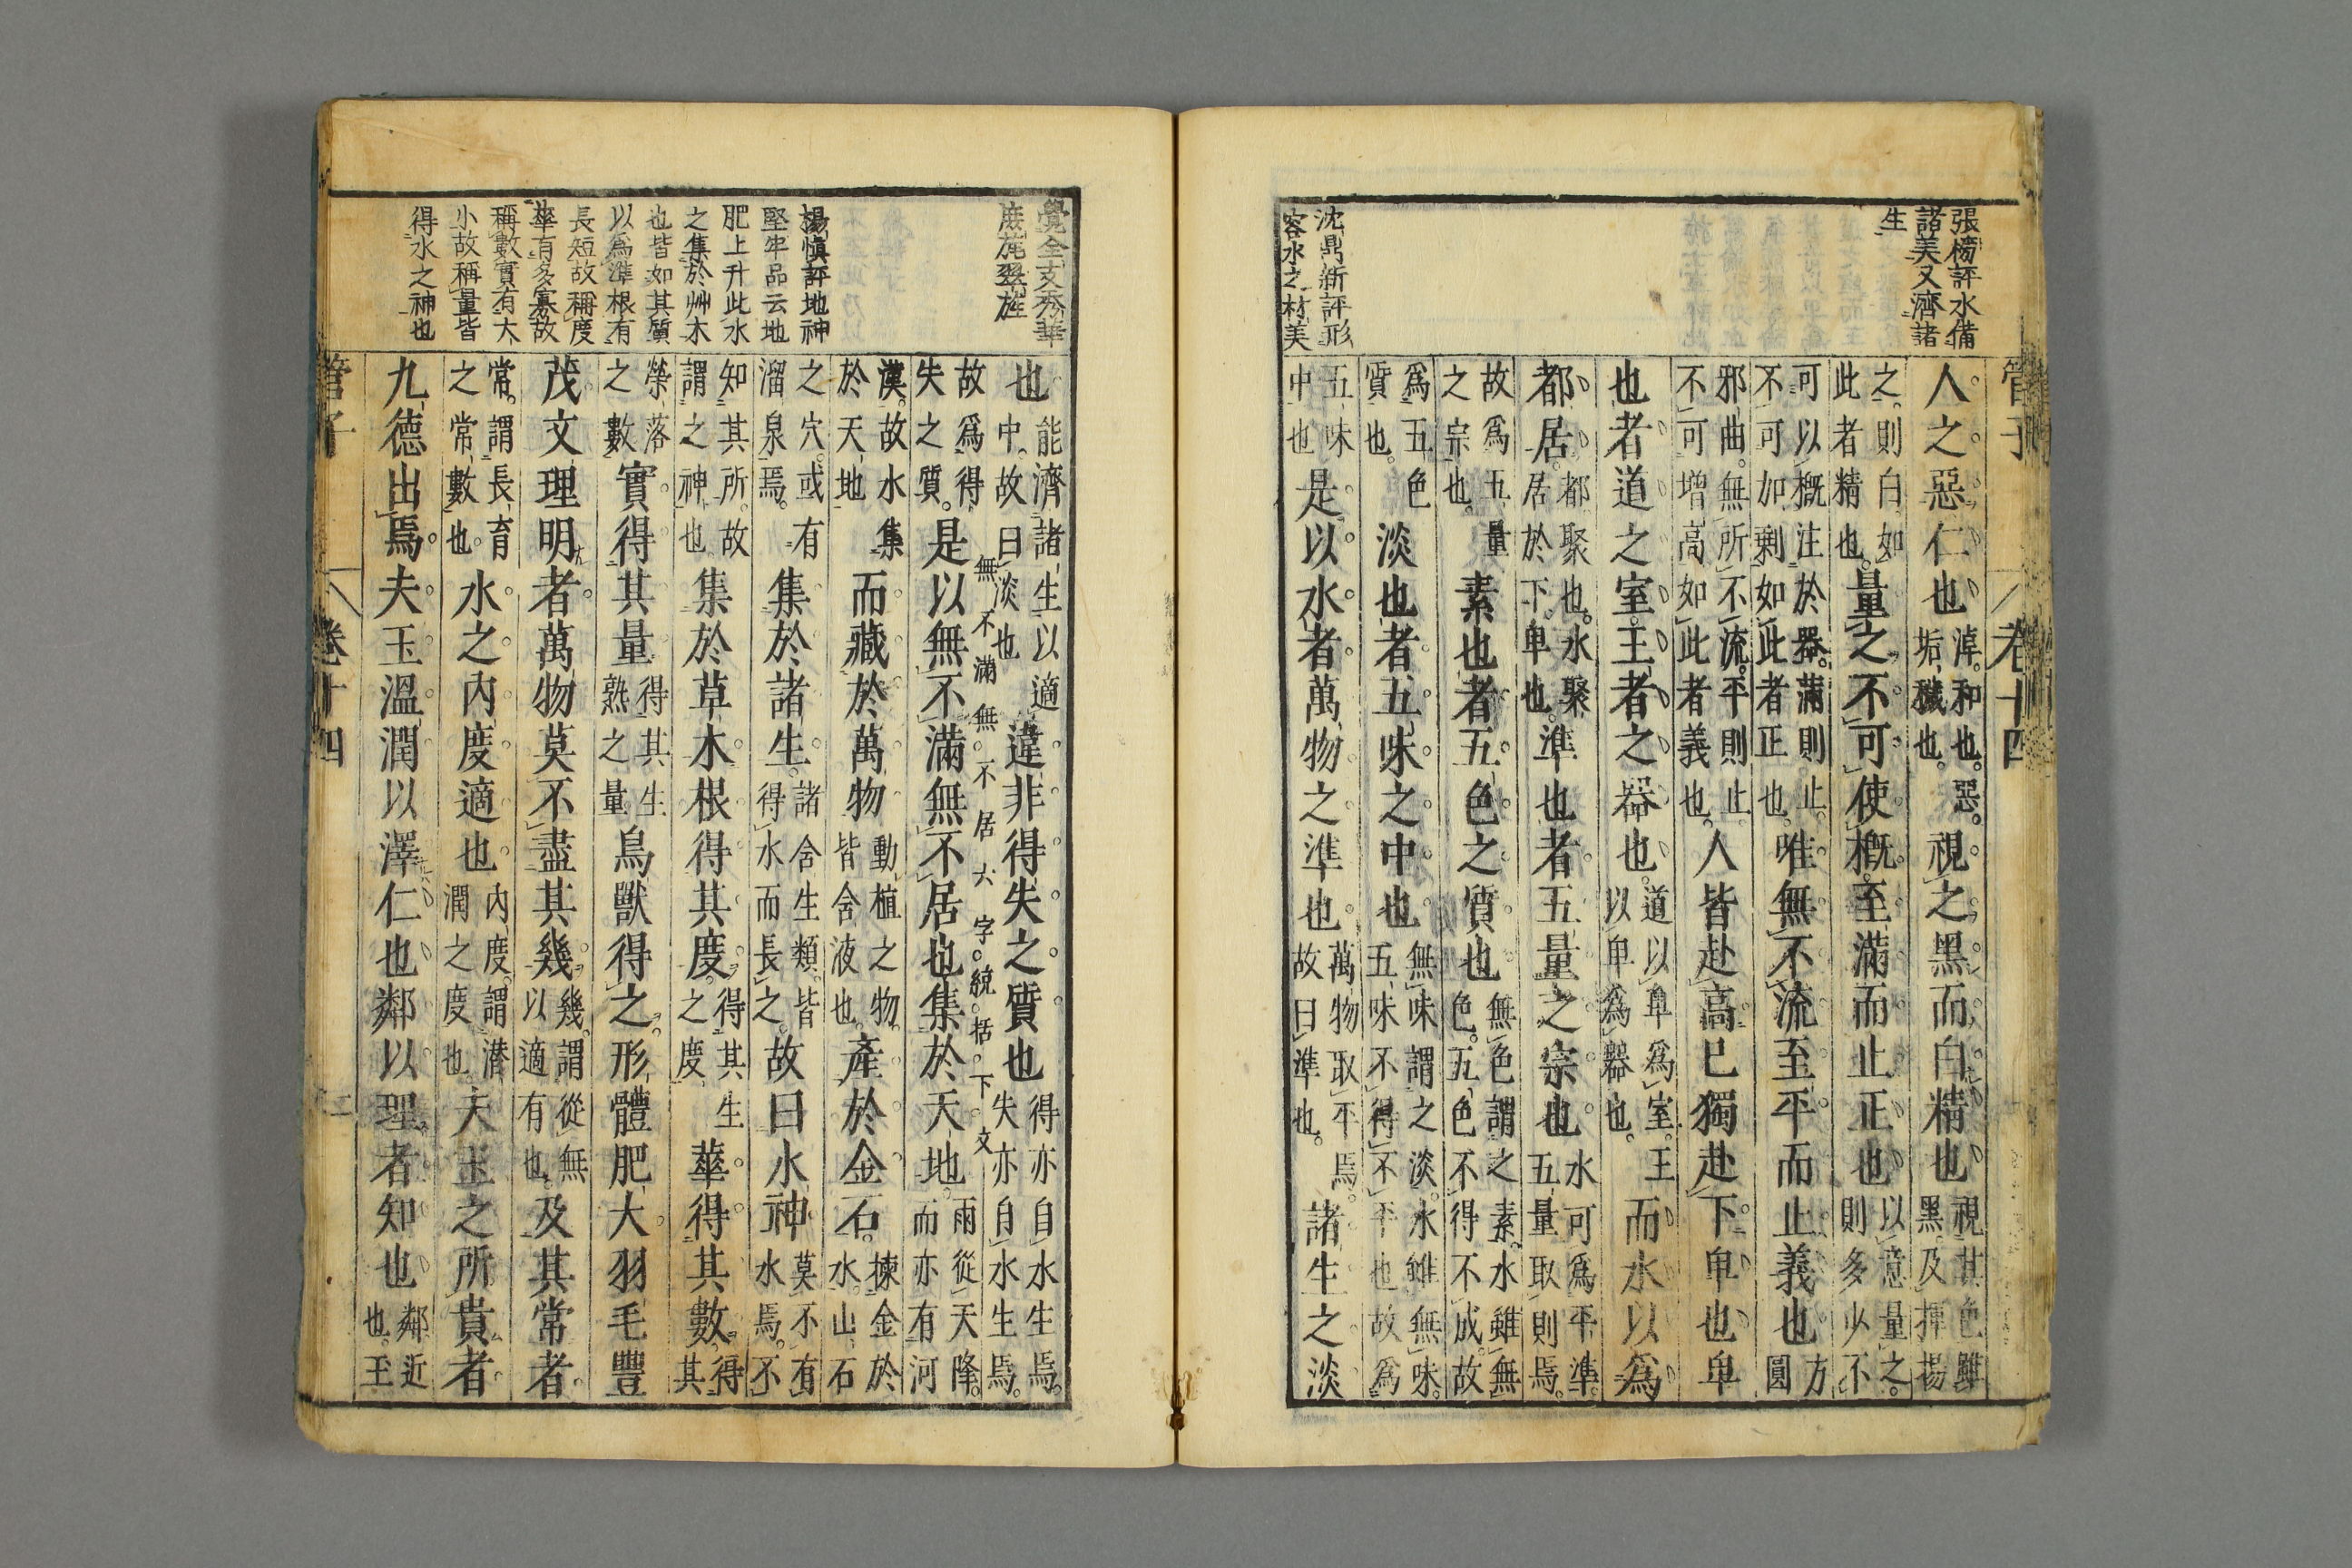 張榜評水備
諸美又濟諸
生
沈鼎新評形
容水之材美
管子
卷十四
人之惡仁也淖和也惡垢穢也視之黑而白精也視其色雖黑及揮揚
之則白如此者精也量之不可使概至滿而止正也以意量之則多少不
可以概注於器滿則止不可加剩如此者正也唯無不流至平而止義也方圓
邪曲無所不流平則止不可增高如此者義也人皆赴高已獨赴下卑也卑
也者道之室王者之器也道以卑爲室王以卑爲器也而水以爲
都居都聚也水聚居於下卑也準也者五量之宗也水可爲平準五量取則焉
故爲五量之宗也素也者五色之質也無色謂之素水雖無色五色不得不成故
爲五色質也淡也者五味之中也無味謂之淡水雖無味五味不得不平也故爲
五味中也是以水者萬物之準也萬物取平焉故曰準也諸生之淡
覺全文秀華
楊慎評地神
堅牢品云地
肥上升此水
之集於艸木
也皆如其質
以爲準根有
長短故稱度
華有多寡故
稱數實有大
小故稱量皆
得水之神也
也能濟諸生以適中故曰淡也違非得失之質也得亦自水生焉失亦自水生焉
無不滿無不居六字統括下文
故爲得失之質是以無不滿無不居也集於天地雨從天降而亦有河
漢故水集於天地而藏於萬物動植之物皆含液也產於金石揀金於水山石
之穴或有溜泉焉集於諸生諸含生類皆得水而長之故曰水神莫不有水焉不
知其所故謂之神也集於草木根得其度得其生之度華得其數得其
榮落之數實得其量得其生熟之量鳥獸得之形體肥大羽毛豐
茂文理明著萬物莫不盡其幾幾謂從無以適有也及其常者
常謂長育之常數也水之內度適也內度謂潛潤之度也夫玉之所貴者
九德出焉夫玉溫潤以澤仁也鄰以理者知也鄰近也玉
管子
卷十四
二